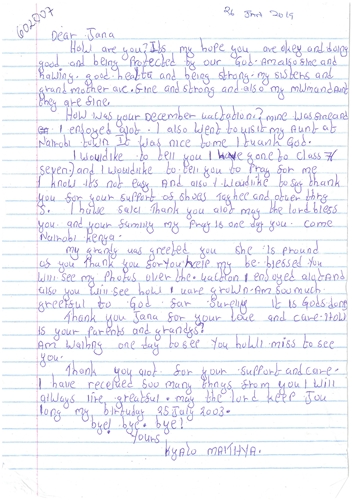 602007
26 Jan 2019
Dear Jana
How are you? Its my hope you are okey and doing
good and being protected by our God. Am also fine and
having good health and being strong. my sisters and
grand mother are fine and strong and also my mum and
they are fine.
How was your December vacation? mine was and
I enjoyed alot. I also went to visit my Aunt at
Nairobi town It was nice tome I thank God.
I would like to tell you I have gone to class 7/
seven/ and I would like to tell you to Pray for me
I know it's not easy. And also I would like to say thank
you for your support of shoes and other thing
s. I have said Thank you alot may the lord bless
you and your family my Pray is one day you come
Nairobi Kenya.
my granny was greeted you she is pround
of you Thank you for your help my be blessed You
will see my Photos over the vacation I enjoyed alot And
also you will see how I vare grown. Am soo much
greetful to God for surely it is Gods doing
Thank you Jana for your love and care. How
is your parents and grandys?
Am waiting one day to see You how I miss to see
you.
Thank you alot for your support and care.
I have received soo many things from you I will
always live greatful. may the lord keep you
long my birthday 25 July 2003.
bye! bye. bye!
Yours
Kyalo MAITHYA.